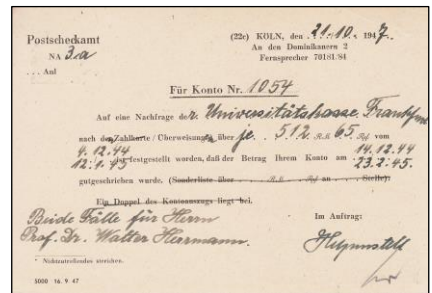 Postscheckamt
NA 3a
... Anl
(22c) KÖLN, den 21.10. 1947.
An den Dominikanern 2
Fernsprecher 70181/84
Für Konto Nr. 1054
Auf eine Nachfrage der Universitätskasse Frankfurt
nach den Zahlkarte / Überweisung über je 512 RM 65 Rpf vom
9.12.44
12.1.45 ist festgestellt worden, daß der Betrag Ihrem Konto am 14.12.44
23.2.45.
gutgeschrieben wurde. (Sonderliste über RM Rpf an Stelle):
Ein Doppel des Kontoauszugs liegt bei.
Beide Fälle für Herrn
Prof. Dr. Walter Herrmann.
Im Auftrag:
* Nichtzutreffendes streichen.
5000 16. 9. 47